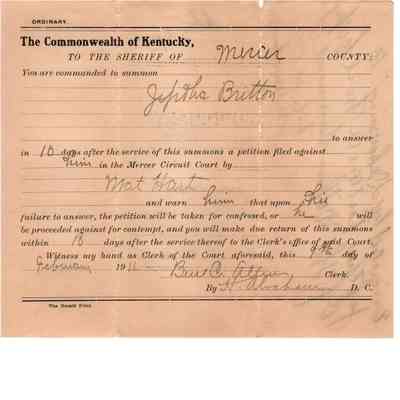 ORDINARY.
The Commonwealth of Kentucky,
TO THE SHERIFF OF Mercer COUNTY:
You are commanded to summon
Jeptha Britton
to answer
in 10 days after the service of this summons a petition filed against
him in the Mercer Circuit Court by
Mat Hart
and warn him that upon his
failure to answer, the petition will be taken for confessed, or he will
be proceeded against for contempt, and you will make due return of this summons
within 10 days after the service thereof to the Clerk's office of said Court.
Witness my hand as Clerk of the Court aforesaid, this 9th day of
February 1911 Ben C. Allen Clerk.
By H. D. C.
The Herald Print.